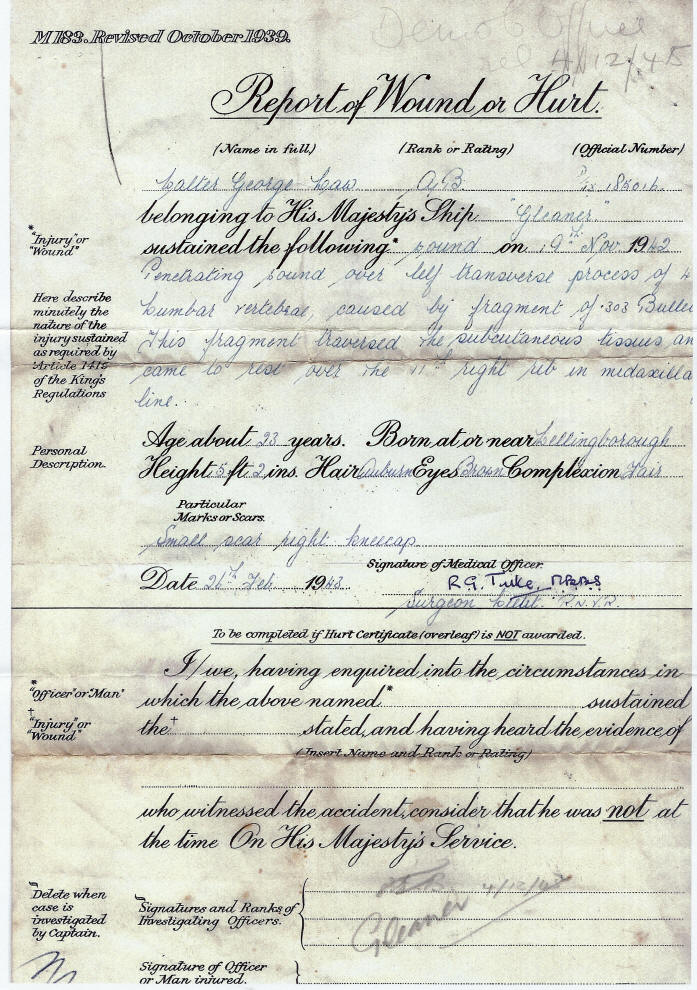 M 183. Revised October 1939.
4/12/45
Report of Wound or Hurt.
(Name in full,) (Rank or Rating) (Official Number)
Walter George Law A.B.
belonging to His Majesty's Ship "Gleaner"
* "Injury" or "Wound"
sustained the following* wound on 19th Nov. 1942
Here describe minutely the nature of the injury sustained as required by Article 1415 of the King's Regulations
Penetrating wound over left transverse process of 4
Lumbar vertebrae, caused by fragment of .303 Bulle
This fragment traversed the subcutaneous tissues an
came to rest over the 11th right rib in midaxilla
line.
Personal Description.
Age about 23 years. Born at or near Wellingborough
Height 5 ft 2 ins. Hair Auburn Eyes Brown Complexion Fair
Particular Marks or Scars.
Small scar right kneecap
Signature of Medical Officer.
Date 26th Feb. 1943 R.G. Tuke, M.B.B.S
Surgeon Lieut. R.N.V.R.
To be completed if Hurt Certificate (overleaf) is NOT awarded.
I/we, having enquired into the circumstances in
* "Officer" or Man"
which the above named* sustained
† "Injury" or "Wound"
the† stated, and having heard the evidence of
(Insert Name and Rank or Rating)
who witnessed the accident, consider that he was not at
the time On His Majesty's Service.
Delete when case is investigated by Captain.
Signatures and Ranks of Investigating Officers.
Gleaner
Signature of Officer or Man injured.